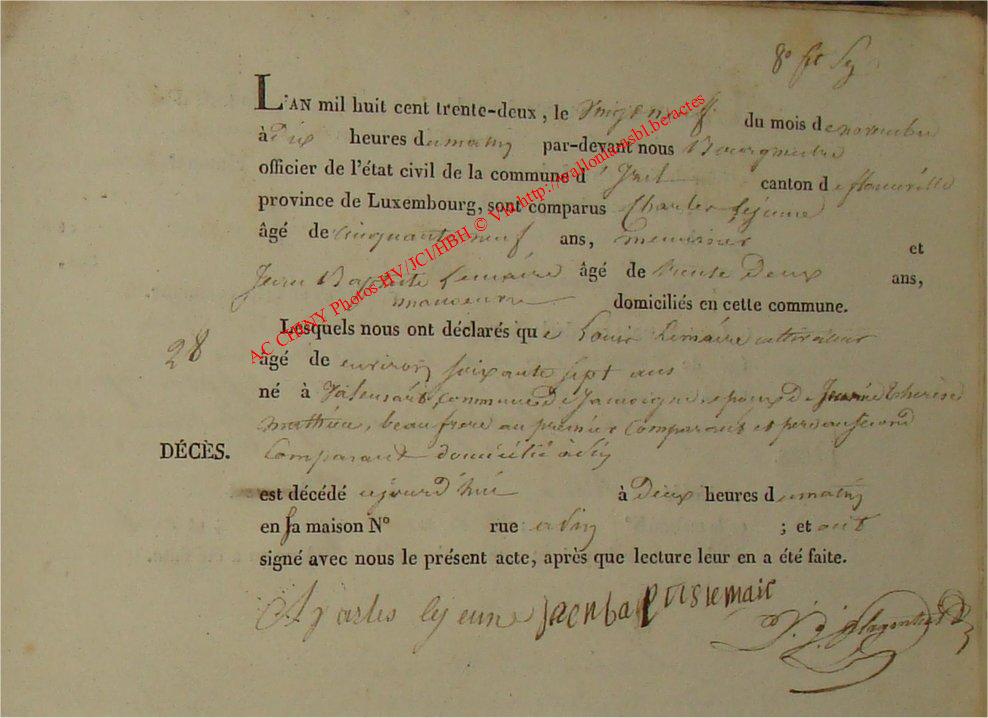 8e fte
L'AN mil huit cent trente-deux, le vingt neuf du mois de novembre
à dix heures du matin par-devant nous Bourgmestre
officier de l'état civil de la commune d' Izel canton de florenville
province de Luxembourg, sont comparus Charles Lejeune
âgé de cinquante neuf ans, menuisier et
Jean Baptiste Lemaire âgé de trente deux ans,
manoeuvre domiciliés en cette commune.
Lesquels nous ont déclarés que Louis Lemaire cultivateur
28
agé de environ soixante sept ans
né à Valensart, commune de Jamoigne, epoux de Jeanne therese
mathieu, beaufrere au premier Comparant et pere au second
DÉCÈS.
Comparant domicilié à
est décédé aujourd'hui à Deux heures du matin
en sa maison N° rue ; et ont
signé avec nous le présent acte, après que lecture leur en a été faite.
Charles lejeune jaenbaptistlemair
AC CHINY Photos HV/JCl/HBH © Via http://walloniansbl.be/actes